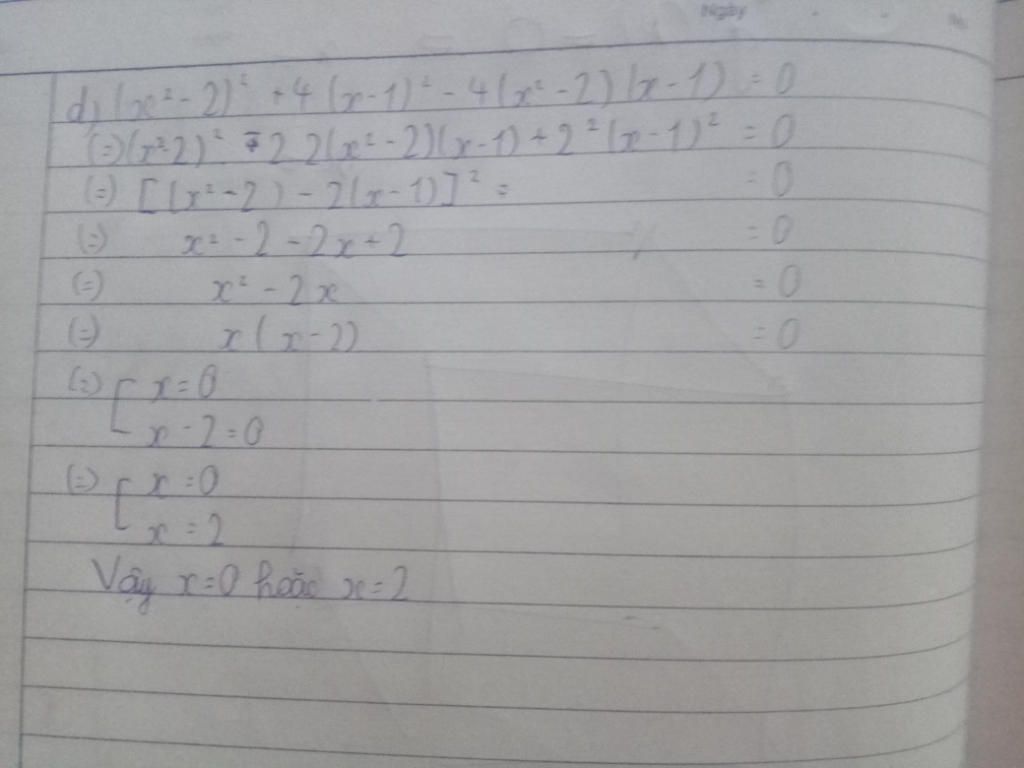 Ngày
d) (x² - 2)² + 4(x - 1)² - 4(x² - 2)(x - 1) = 0
(=) (x² - 2)² - 2 2(x² - 2)(x - 1) + 2²(x - 1)² = 0
(=) [(x² - 2) - 2(x - 1)]² = = 0
(=) x² - 2 - 2x + 2 = 0
(=) x² - 2x = 0
(=) x(x - 2) = 0
(=) [ x = 0
x - 2 = 0
(=) [ x = 0
x = 2
Vậy x = 0 hoặc x = 2